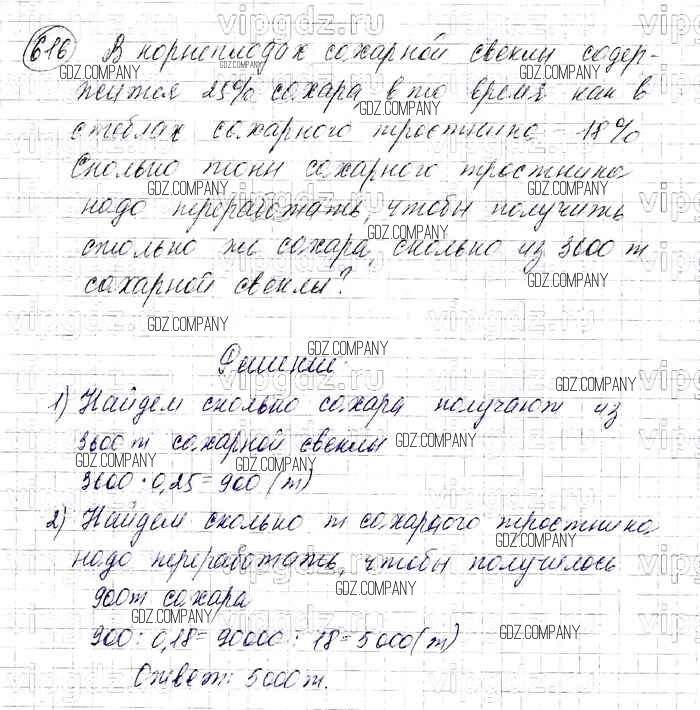 616 В корнеплодах сахарной свеклы содер-
жится 25% сахара, в то время как в
стеблях сахарного тростника - 18%
Сколько тонн сахарного тростника
надо переработать, чтобы получить
столько же сахара, сколько из 3600 т
сахарной свеклы?
Решение:
1) Найдем сколько сахара получают из
3600 т сахарной свеклы
3600 · 0,25 = 900 (т)
2) Найдем сколько т сахарного тростника
надо переработать, чтобы получилось
900т сахара
900 : 0,18 = 90000 : 18 = 5000 (т)
Ответ: 5000т.
vipgdz.ru
GDZ.COMPANY